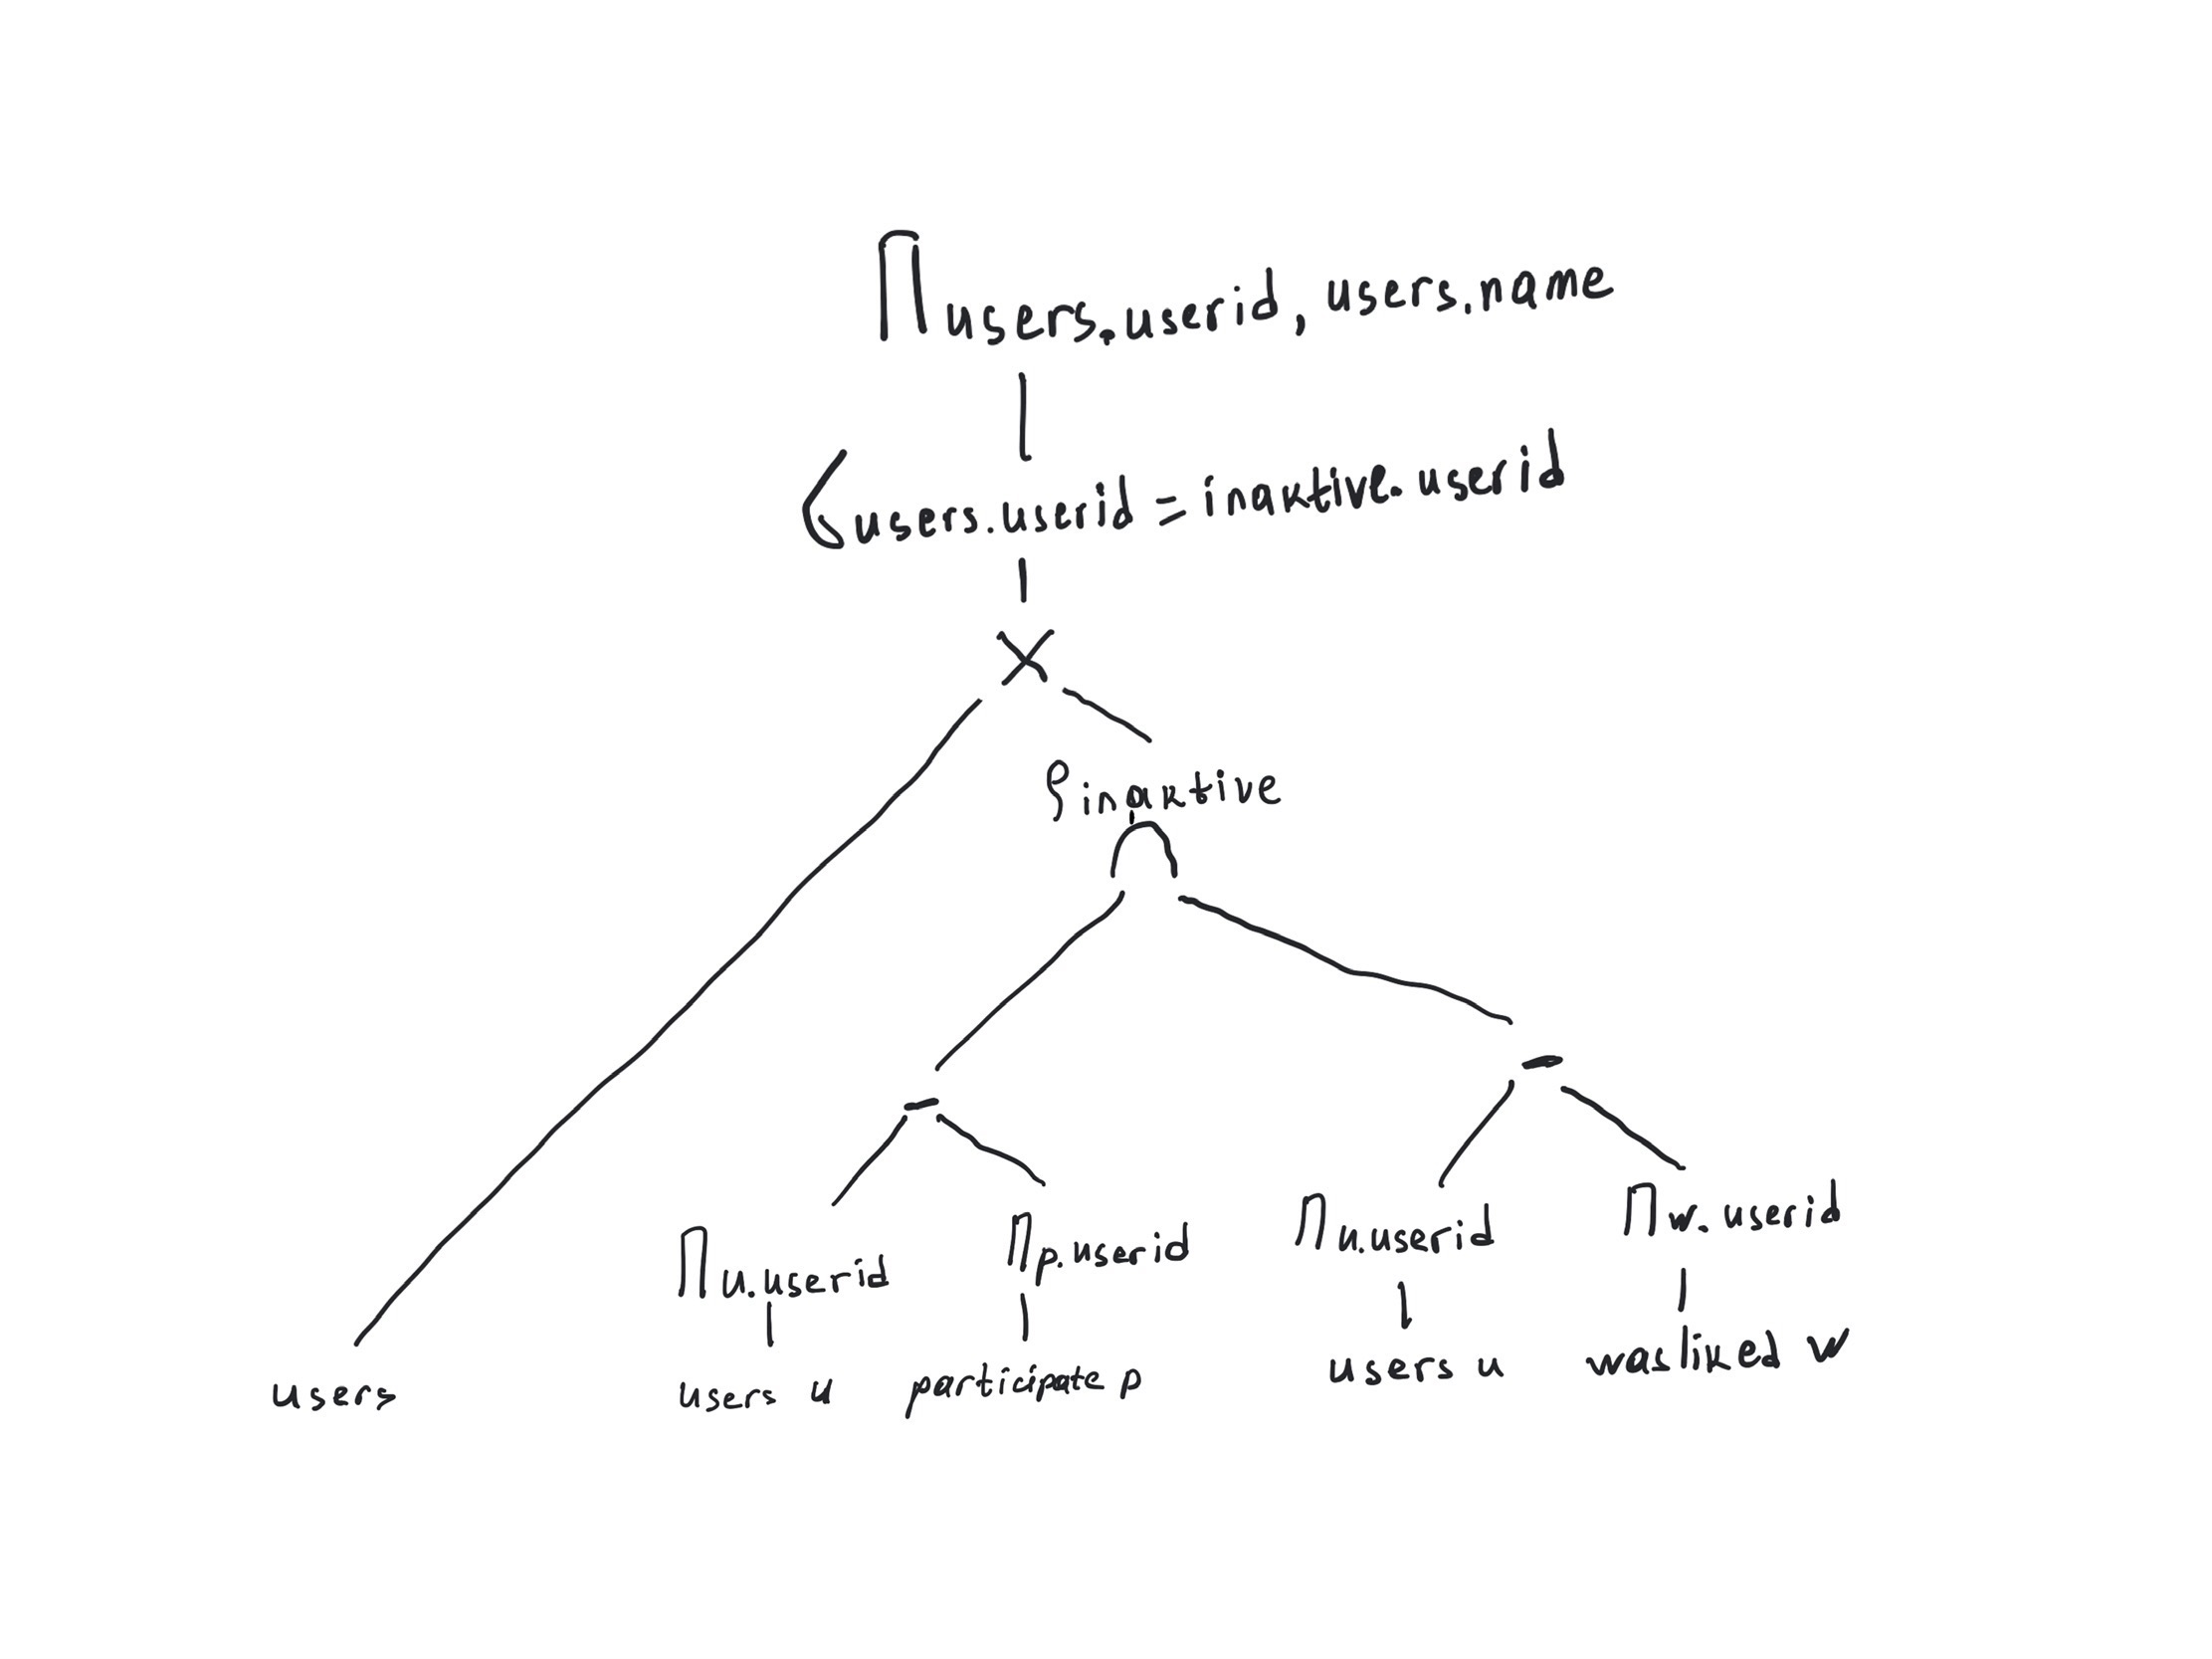 Π users.userid, users.name
σ users.userid = inaktive.userid
×
ρ inaktive
∩
-
-
Π u.userid Π p.userid Π u.userid Π w.userid
users users u participate p users u wasliked w